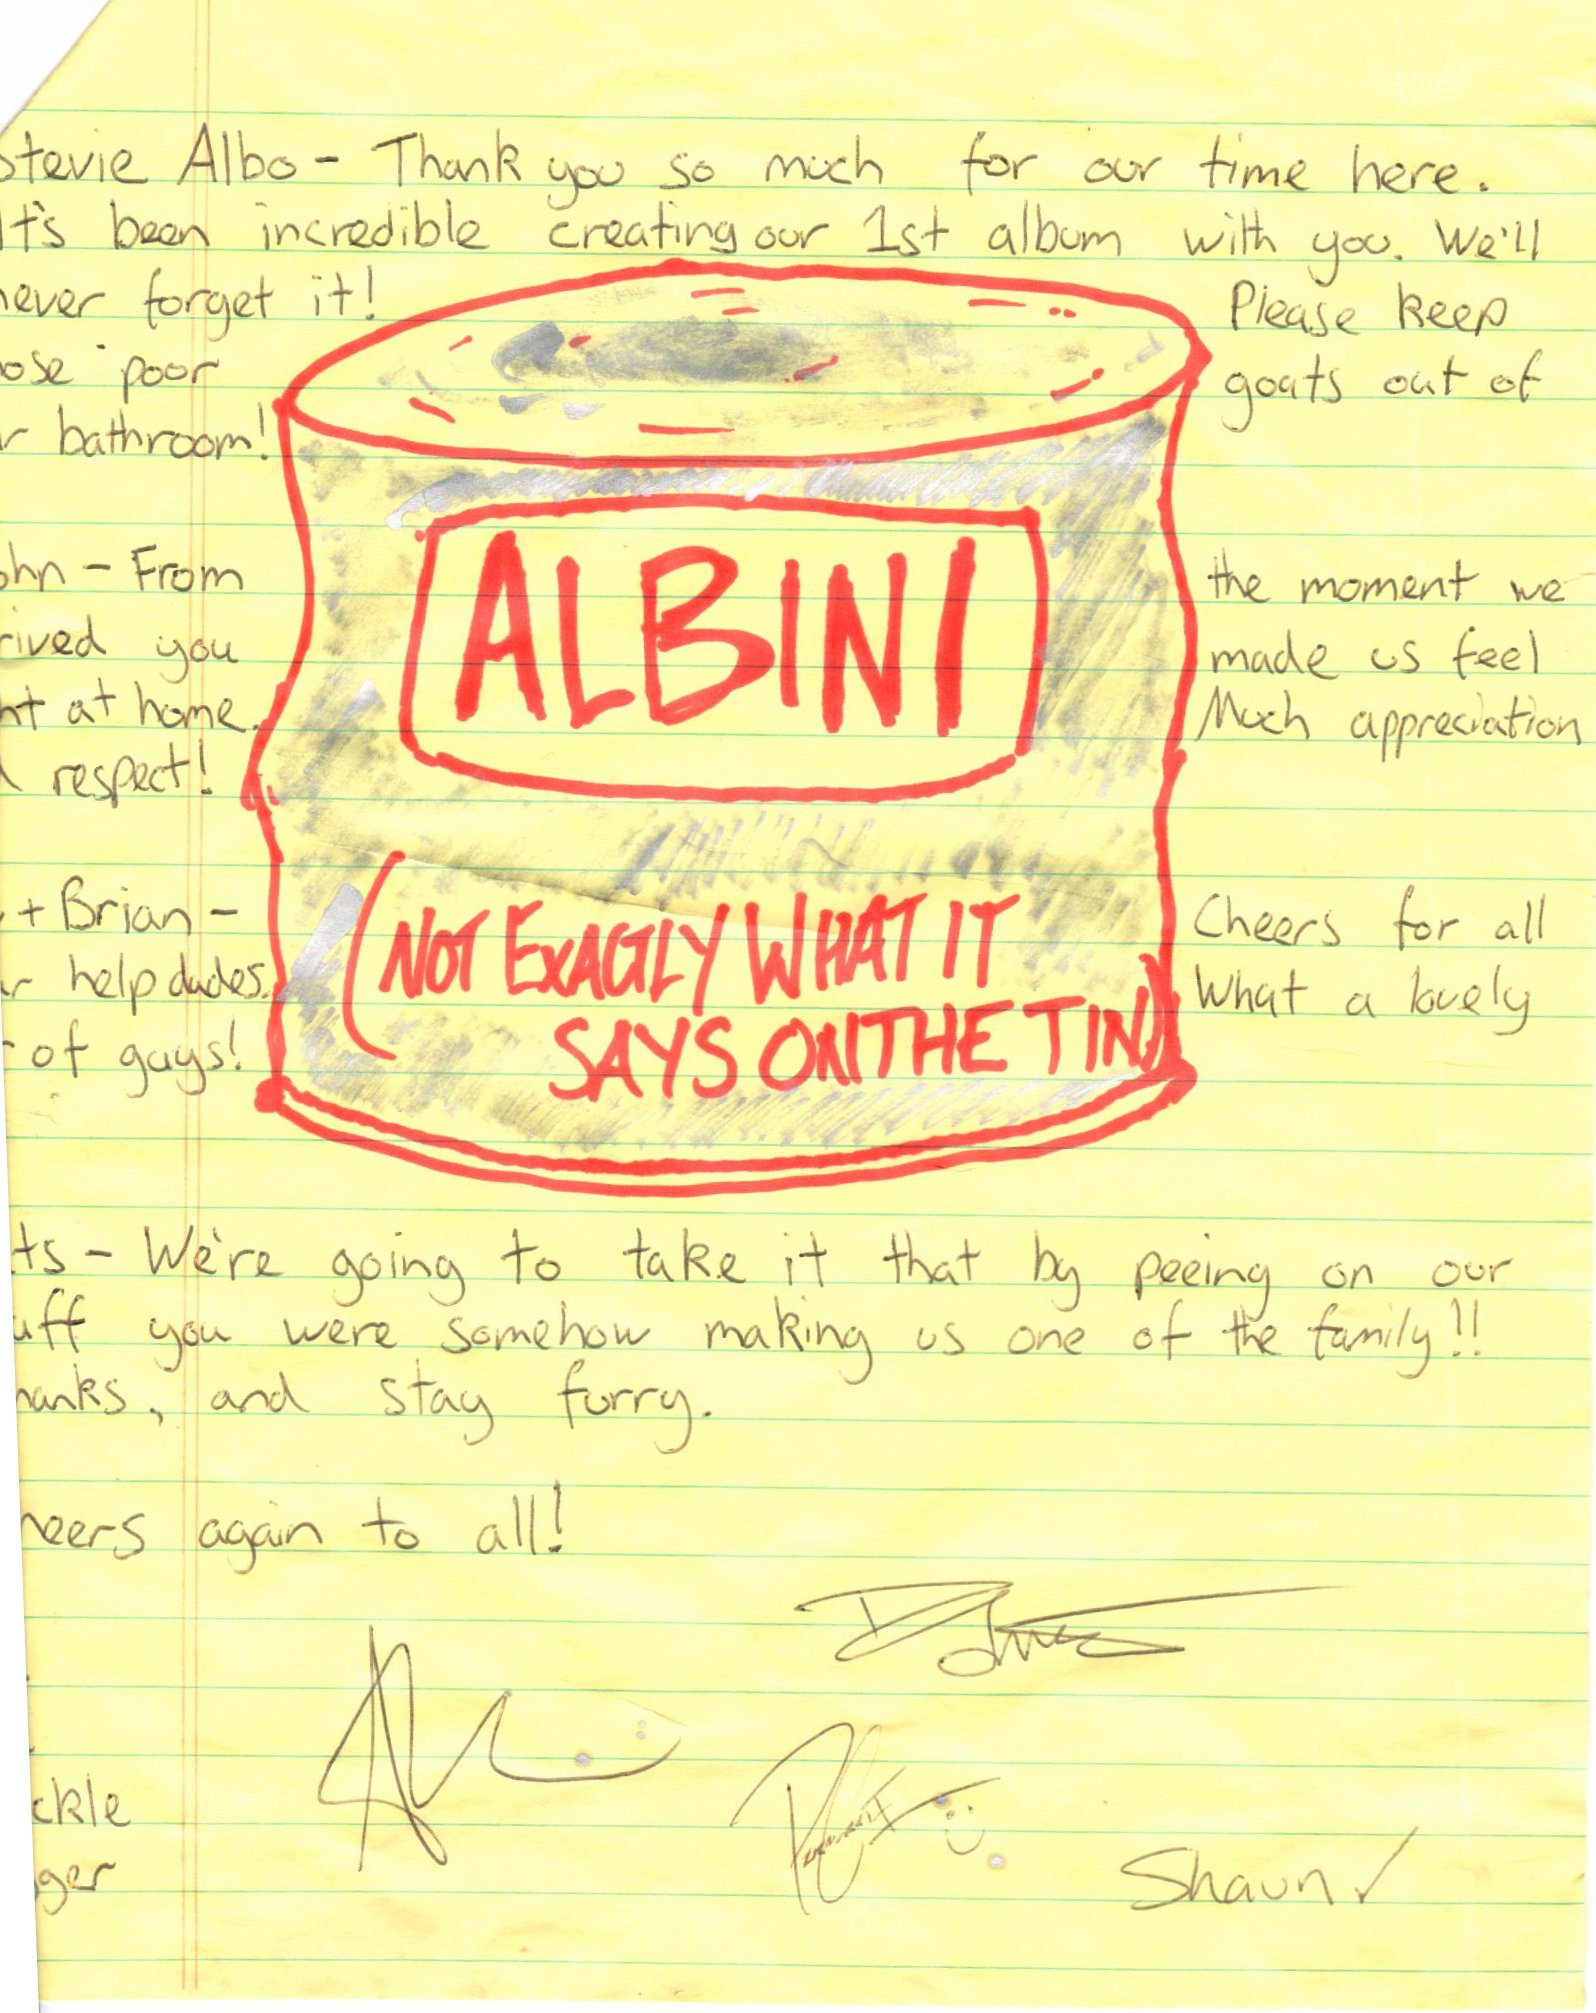 Stevie Albo - Thank you so much for our time here.
It's been incredible creating our 1st album with you. We'll
never forget it! Please keep
ose poor goats out of
r bathroom!
ALBINI
ohn - From the moment we
rived you made us feel
ht at home. Much appreciation
respect!
+ Brian - Cheers for all
r help dudes. What a lovely
r of guys!
NOT EXACTLY WHAT IT
SAYS ON THE TIN)
ts - We're going to take it that by peeing on our
uff you were somehow making us one of the family!!
hanks, and stay furry.
heers again to all!
ckle
gger
Shaun